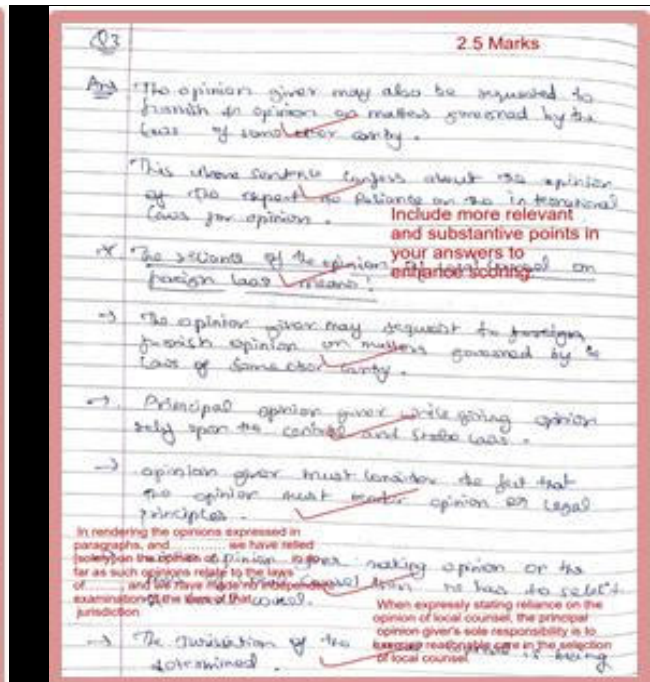 Q3
2.5 Marks
Ans The opinion giver may also be requested to
furnish opinion on matters governed by the
laws of some other
This above sentence about the opinion
of the expert reliance on the international
laws for opinion.
Include more relevant
and substantive points in
your answers to
enhance scoring
* The reliance of the opinion of local counsel on
foreign laws means:
-> The opinion giver may request to
furnish opinion on matters governed by
laws of some other
-> Principal opinion giver while giving opinion
rely upon the central and state laws.
-> opinion giver must consider the fact that
the opinion must opinion or legal
principles.
In rendering the opinions expressed in
paragraphs, and ............ we have relied
(solely) on the opinion of
far as such opinions relate to the laws
of and we have made no independent
examination of the laws of that
jurisdiction
opinion making opinion or the
counsel then he has to select
counsel.
When expressly stating reliance on the
opinion of local counsel, the principal
opinion giver's sole responsibility is to
exercise reasonable care in the selection
of local counsel.
-> The of the is being
determined.